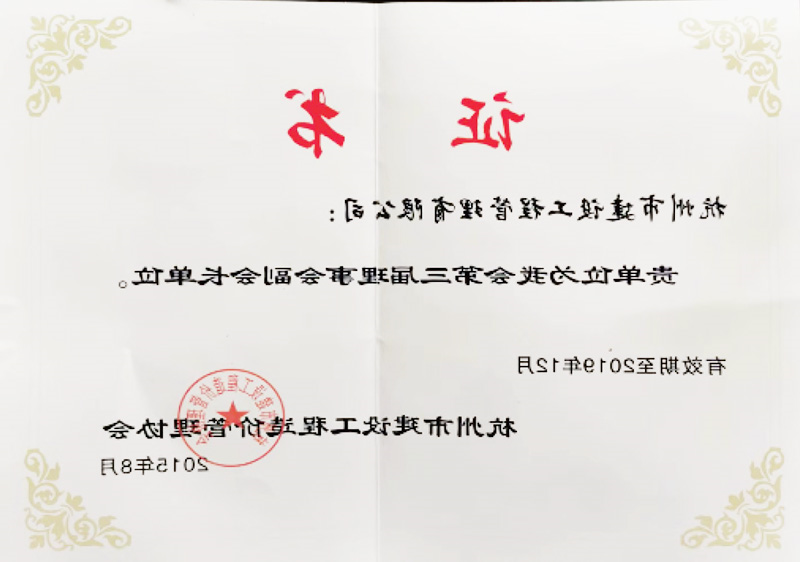 证书
杭州市建设工程管理有限公司：
贵单位为我会第三届理事会副会长单位。
有效期至2019年12月
杭州市建设工程造价管理协会
2015年8月